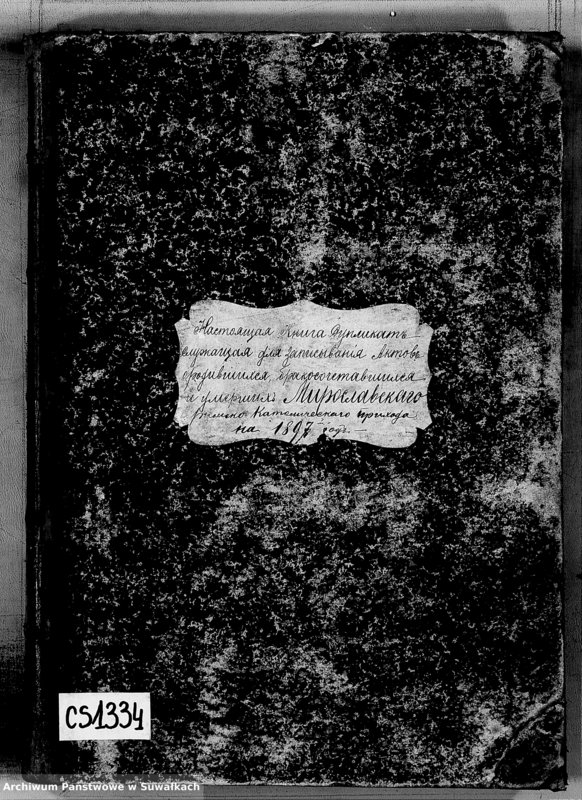 Настоящая Книга Дупликатъ
служащая для записыванія Актовъ
о родившихся, бракосочетавшихся
и умершихъ Мирославскаго
Римско Католическаго прихода
на 1897 годъ.
CS1334
Archiwum Państwowe w Suwałkach